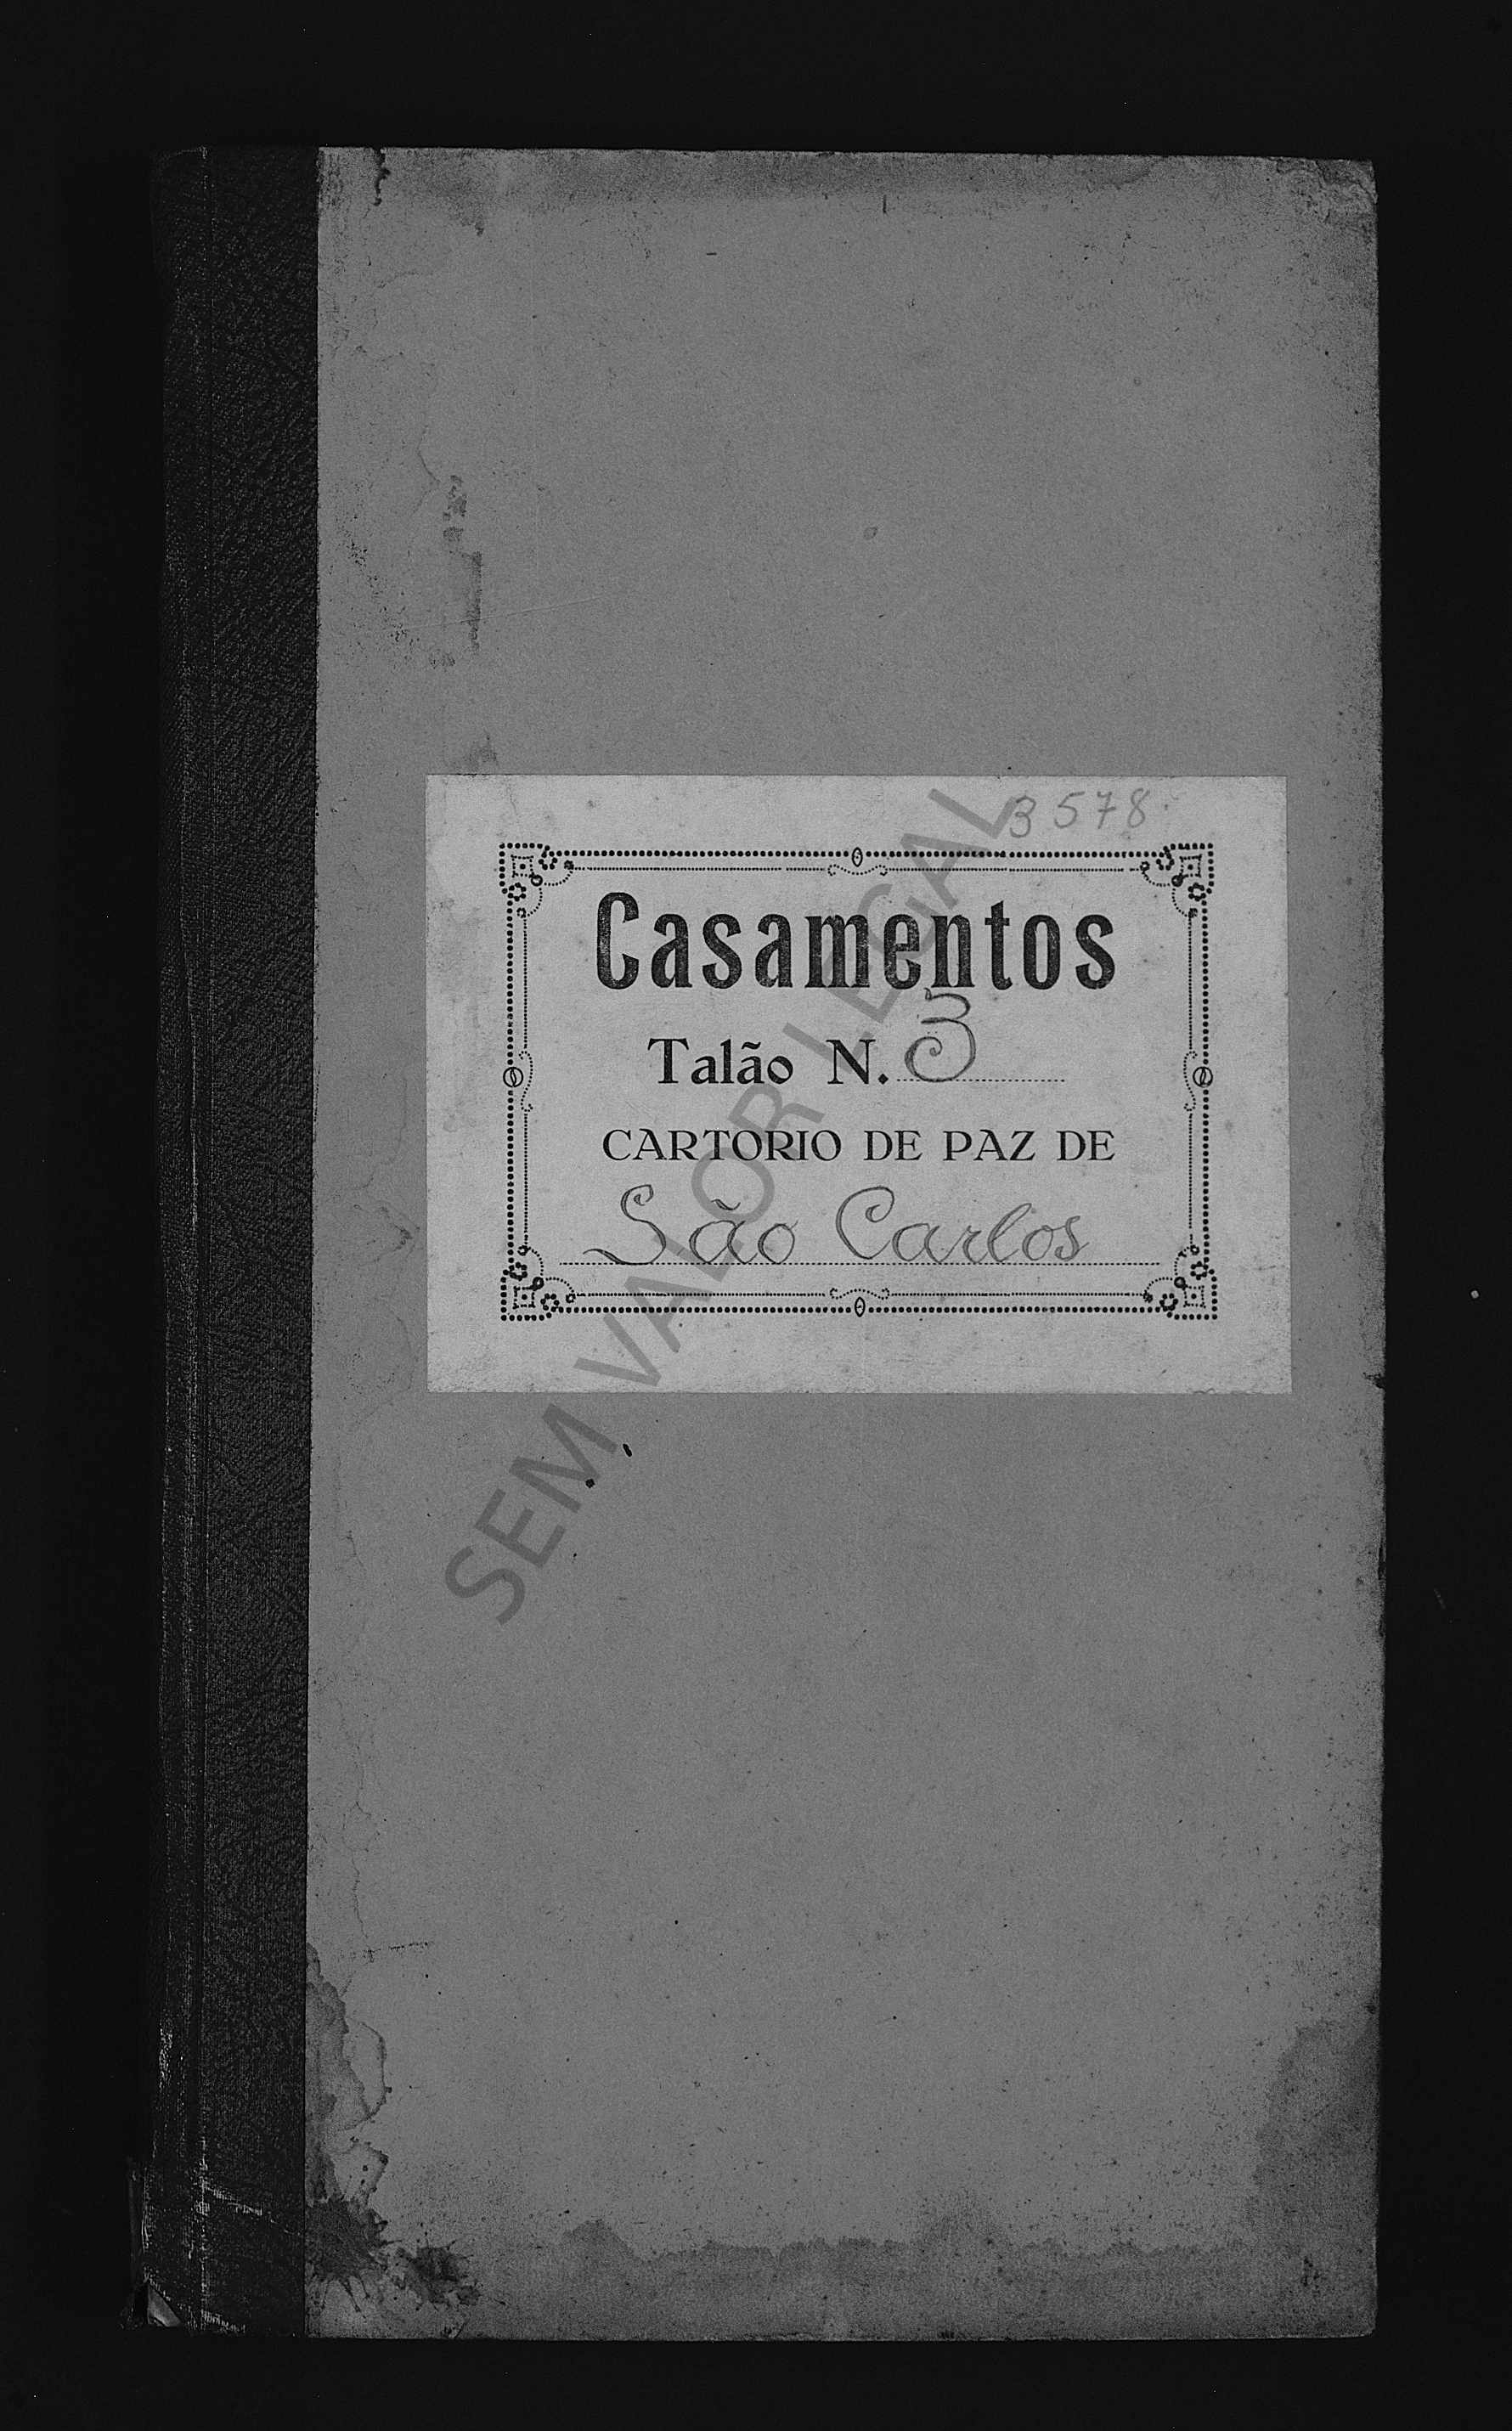 3578
Casamentos
Talão N. 3
CARTORIO DE PAZ DE
São Carlos
SEM VALOR LEGAL